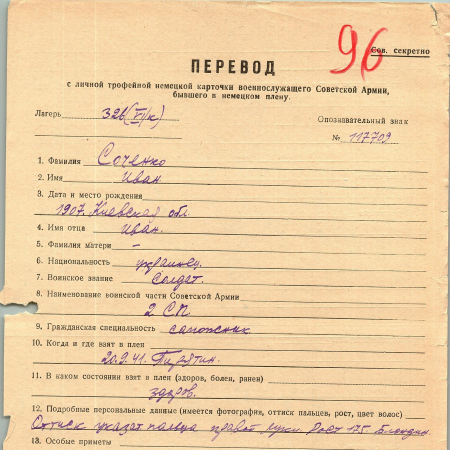 96
Сов. секретно
ПЕРЕВОД
с личной трофейной немецкой карточки военнослужащего Советской Армии,
бывшего в немецком плену.
Лагерь 326 (VI/к) Опознавательный знак
№ 117709
1. Фамилия Соченко
2. Имя Иван
3. Дата и место рождения
1907. Киевская обл.
4. Имя отца Иван.
5. Фамилия матери –
6. Национальность украинец.
7. Воинское звание Солдат.
8. Наименование воинской части Советской Армии
2 СП
9. Гражданская специальность сапожник
10. Когда и где взят в плен
20.9.41. Пирятин.
11. В каком состоянии взят в плен (здоров, болен, ранен)
здоров.
12. Подробные персональные данные (имеется фотография, оттиск пальцев, рост, цвет волос)
Оттиск указат пальца правой руки. Рост 175. Блондин.
13. Особые приметы